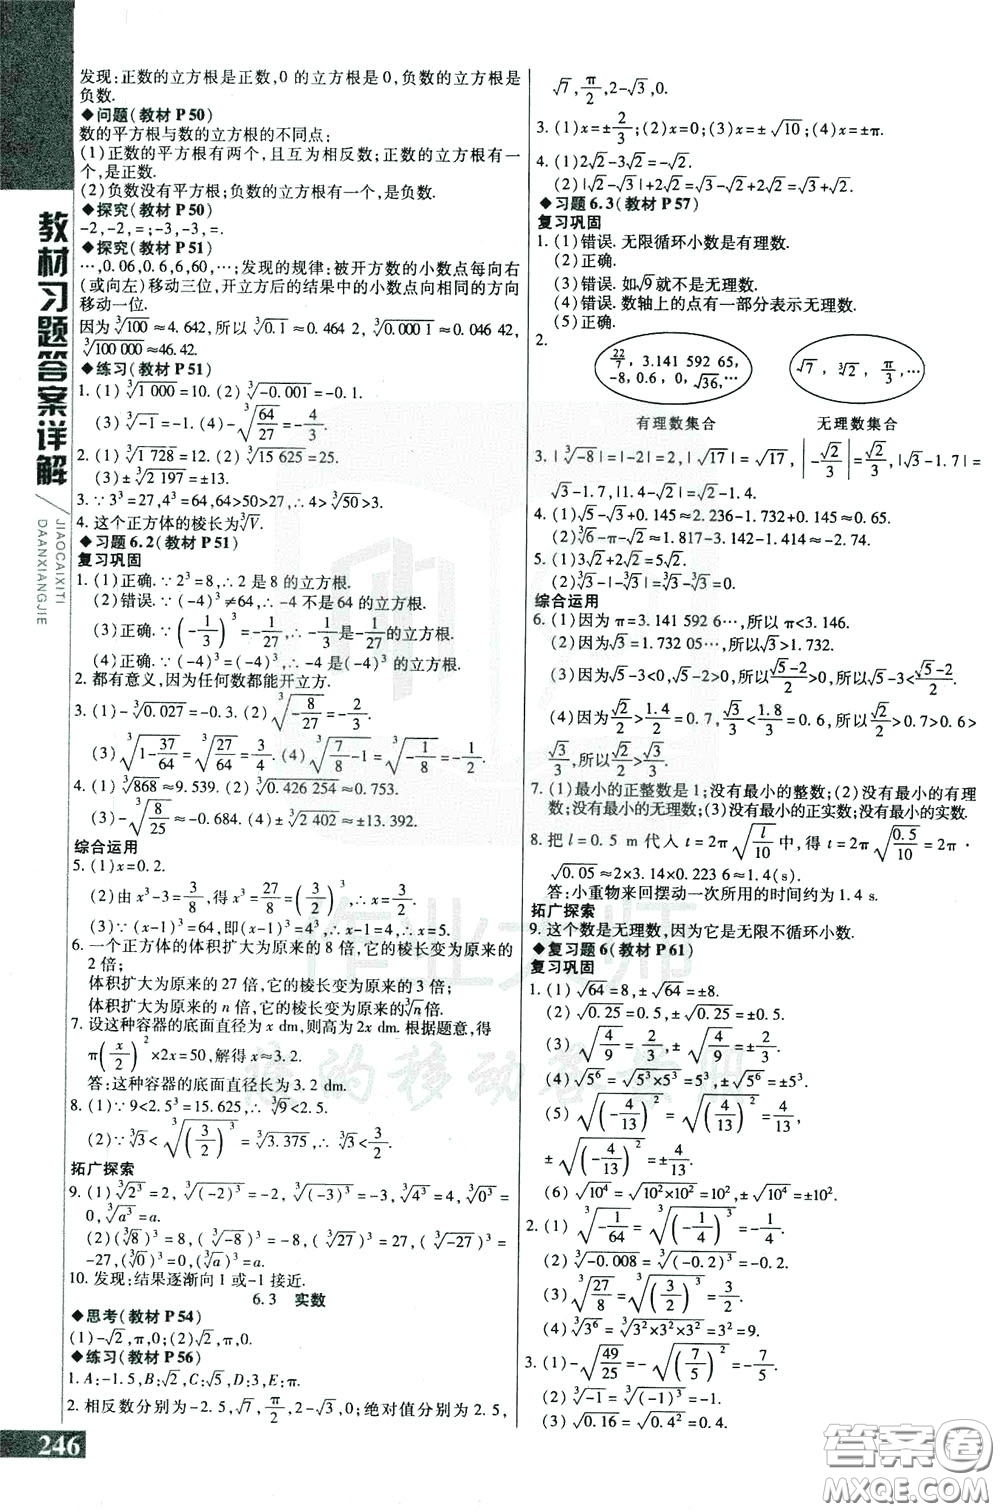 教材习题答案详解
JIAOCAIXITI
DAANXIANGJIE
发现:正数的立方根是正数,0 的立方根是 0,负数的立方根是
负数.
◆问题(教材 P50)
数的平方根与数的立方根的不同点:
(1)正数的平方根有两个,且互为相反数;正数的立方根有一
个,是正数.
(2)负数没有平方根;负数的立方根有一个,是负数.
◆探究(教材 P50)
-2,-2,=;-3,-3,=.
◆探究(教材 P51)
…,0.06,0.6,6,60,…;发现的规律:被开方数的小数点每向右
(或向左)移动三位,开立方后的结果中的小数点向相同的方向
移动一位.
因为∛100≈4.642,所以∛0.1≈0.464 2,∛0.000 1≈0.046 42,
∛100 000≈46.42.
◆练习(教材 P51)
1. (1)∛1 000=10. (2)∛-0.001=-0.1.
(3)∛-1=-1. (4)-∛(64/27)=-4/3.
2. (1)∛1 728=12. (2)∛15 625=25.
(3)±∛2 197=±13.
3. ∵3³=27,4³=64,64>50>27,∴4>∛50>3.
4. 这个正方体的棱长为∛V.
◆习题 6.2(教材 P51)
复习巩固
1. (1)正确.∵2³=8,∴2 是 8 的立方根.
(2)错误.∵(-4)³≠64,∴-4 不是 64 的立方根.
(3)正确.∵(-1/3)³=-1/27,∴-1/3是-1/27的立方根.
(4)正确.∵(-4)³=(-4)³,∴-4 是(-4)³的立方根.
2. 都有意义,因为任何数都能开立方.
3. (1)-∛0.027=-0.3. (2)∛(-8/27)=-2/3.
(3)∛(1-37/64)=∛(27/64)=3/4. (4)∛(7/8-1)=∛(-1/8)=-1/2.
4. (1)∛868≈9.539. (2)∛0.426 254≈0.753.
(3)-∛(8/25)≈-0.684. (4)±∛2 402≈±13.392.
综合运用
5. (1)x=0.2.
(2)由 x³-3=3/8,得 x³=27/8=(3/2)³,∴x=3/2.
(3)∵(x-1)³=64,即(x-1)³=4³,∴x-1=4,∴x=5.
6. 一个正方体的体积扩大为原来的 8 倍,它的棱长变为原来的
2 倍;
体积扩大为原来的 27 倍,它的棱长变为原来的 3 倍;
体积扩大为原来的 n 倍,它的棱长变为原来的∛n倍.
7. 设这种容器的底面直径为 x dm,则高为 2x dm.根据题意,得
π(x/2)²×2x=50,解得 x≈3.2.
答:这种容器的底面直径长为 3.2 dm.
8. (1)∵9<2.5³=15.625,∴∛9<2.5.
(2)∵∛3<∛(3/2)³=∛3.375,∴∛3<3/2.
拓广探索
9. (1)∛2³=2,∛(-2)³=-2,∛(-3)³=-3,∛4³=4,∛0³=
0,∛a³=a.
(2)(∛8)³=8,(∛-8)³=-8,(∛27)³=27,(∛-27)³=
-27,(∛0)³=0,(∛a)³=a.
10. 发现:结果逐渐向 1 或-1 接近.
6.3 实数
◆思考(教材 P54)
(1)-√2,π,0;(2)√2,π,0.
◆练习(教材 P56)
1. A:-1.5,B:√2,C:√5,D:3,E:π.
2. 相反数分别为-2.5,√7,π/2,2-√3,0;绝对值分别为 2.5,
246
√7,π/2,2-√3,0.
3. (1)x=±2/3;(2)x=0;(3)x=±√10;(4)x=±π.
4. (1)2√2-3√2=-√2.
(2)|√2-√3|+2√2=√3-√2+2√2=√3+√2.
◆习题 6.3(教材 P57)
复习巩固
1. (1)错误.无限循环小数是有理数.
(2)正确.
(3)错误.如√9就不是无理数.
(4)错误.数轴上的点有一部分表示无理数.
(5)正确.
2.
22/7,3.141 592 65,
-8,0.6,0,√36,…
√7,∛2,π/3,…
有理数集合
无理数集合
3. |∛-8|=|-2|=2,|√17|=√17,|-√2/3|=√2/3,|√3-1.7|=
√3-1.7,|1.4-√2|=√2-1.4.
4. (1)√5-√3+0.145≈2.236-1.732+0.145≈0.65.
(2)∛6-π-√2≈1.817-3.142-1.414≈-2.74.
5. (1)3√2+2√2=5√2.
(2)√3-|-√3|=√3-√3=0.
综合运用
6. (1)因为 π=3.141 592 6…,所以 π<3.146.
(2)因为√3=1.732 05…,所以√3>1.732.
(3)因为√5-3<0,√5-2>0,所以(√5-2)/2>0,所以(√5-3)/2<(√5-2)/2.
(4)因为√2/2>1.4/2=0.7,√3/3<1.8/3=0.6,所以√2/2>0.7>0.6>
√3/3,所以√2/2>√3/3.
7. (1)最小的正整数是 1;没有最小的整数;(2)没有最小的有理
数;没有最小的无理数;(3)没有最小的正实数;没有最小的实数.
8. 把 l=0.5 m 代入 t=2π√(l/10)中,得 t=2π√(0.5/10)=2π·
√0.05≈2×3.14×0.223 6≈1.4(s).
答:小重物来回摆动一次所用的时间约为 1.4 s.
拓广探索
9. 这个数是无理数,因为它是无限不循环小数.
◆复习题 6(教材 P61)
复习巩固
1. (1)√64=8,±√64=±8.
(2)√0.25=0.5,±√0.25=±0.5.
(3)√(4/9)=2/3,±√(4/9)=±2/3.
(4)√5⁶=√(5³×5³)=5³,±√5⁶=±5³.
(5)√(-4/13)²=√(4/13)²=4/13,
±√(-4/13)²=±4/13.
(6)√10⁴=√(10²×10²)=10²,±√10⁴=±10².
2. (1)∛(-1/64)=∛(-1/4)³=-1/4.
(2)∛-0.008=∛(-0.2)³=-0.2.
(3)∛(27/8)=∛(3/2)³=3/2.
(4)∛3⁶=∛(3²×3²×3²)=3²=9.
3. (1)-√(49/25)=-√(7/5)²=-7/5.
(2)∛-1=∛(-1)³=-1.
(3)√0.16=√0.4²=0.4.
作业大师
您的移动答案册
答案卷
MXQE.COM